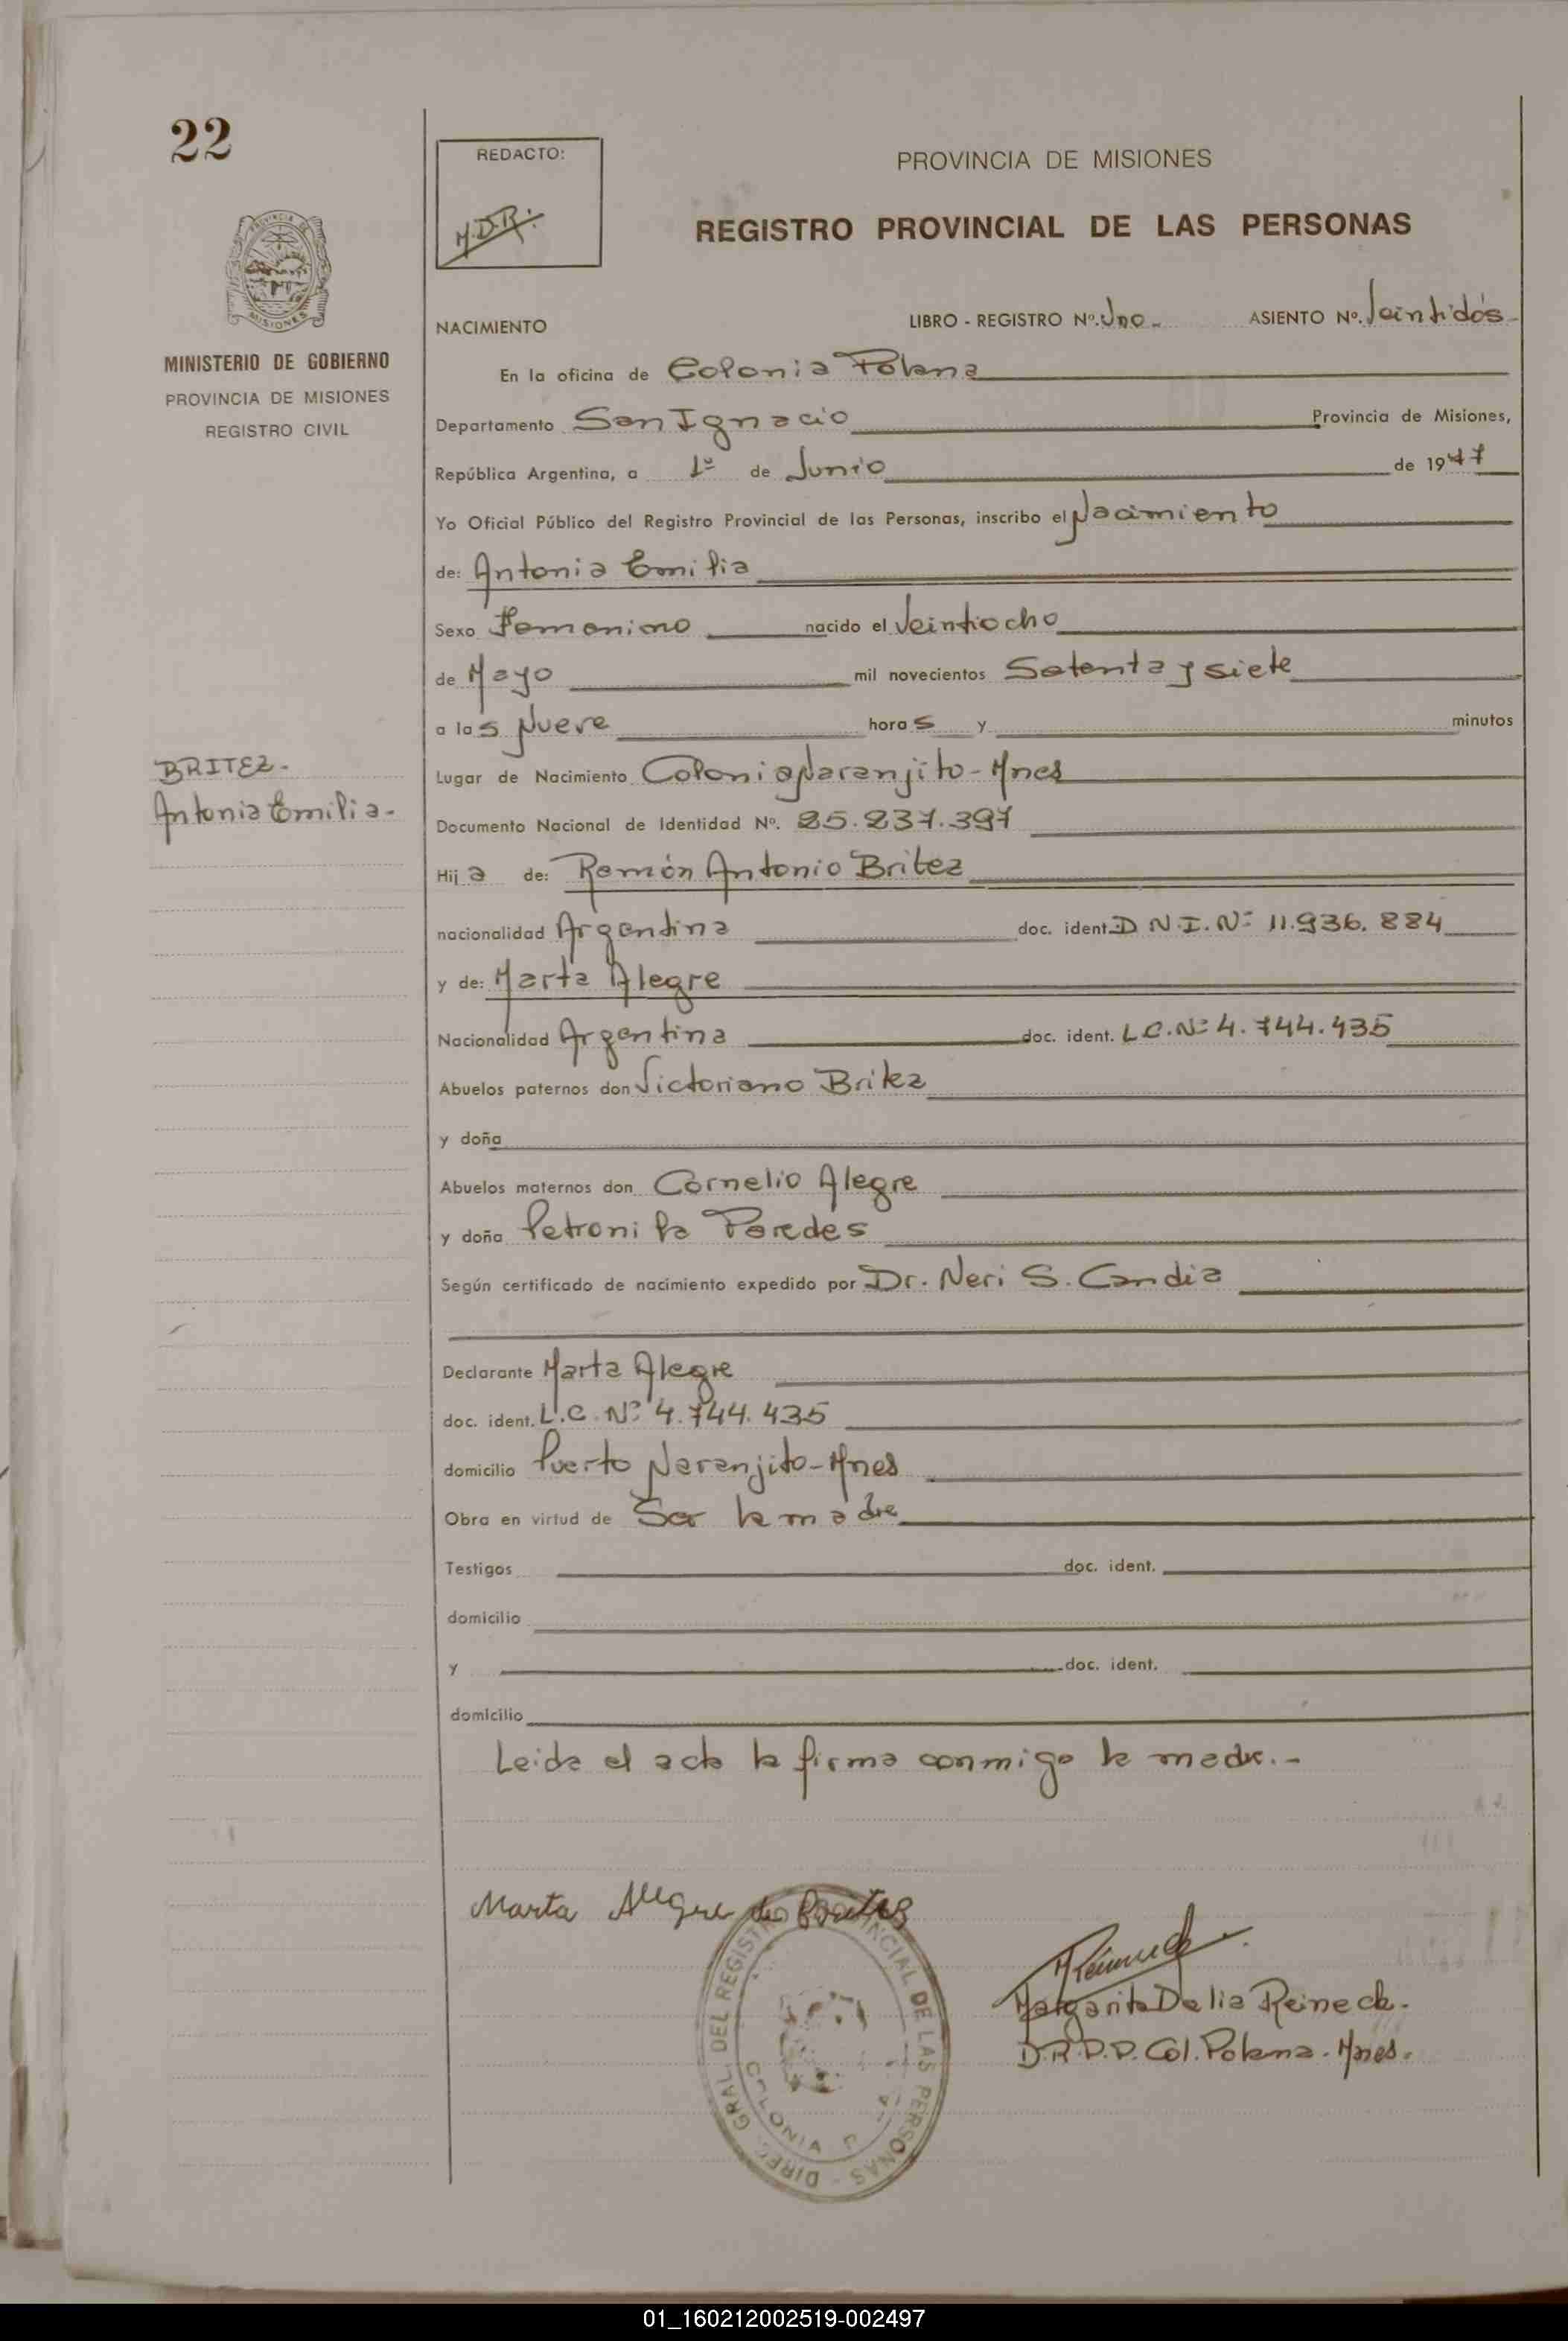 22
REDACTO:
M.D.R.
PROVINCIA DE MISIONES
REGISTRO PROVINCIAL DE LAS PERSONAS
MISIONES
MINISTERIO DE GOBIERNO
PROVINCIA DE MISIONES
REGISTRO CIVIL
NACIMIENTO LIBRO - REGISTRO Nº. Uno - ASIENTO Nº. Veintidós -
En la oficina de Colonia Polana
Departamento San Ignacio Provincia de Misiones,
República Argentina, a 1º de Junio de 1977
Yo Oficial Público del Registro Provincial de las Personas, inscribo el Nacimiento
de: Antonia Emilia
Sexo Femenino nacido el Veintiocho
de Mayo mil novecientos Setenta y siete
a las Nueve horas y minutos
BRITEZ -
Antonia Emilia -
Lugar de Nacimiento Colonia Naranjito - Mnes
Documento Nacional de Identidad Nº. 25.237.397
Hija de: Ramón Antonio Britez
nacionalidad Argentina doc. ident. D N.I. Nº 11.936.884
y de: Marta Alegre
Nacionalidad Argentina doc. ident. L.C. Nº 4.744.435
Abuelos paternos don Victoriano Britez
y doña
Abuelos maternos don Cornelio Alegre
y doña Petronila Paredes
Según certificado de nacimiento expedido por Dr. Neri S. Candia
Declarante Marta Alegre
doc. ident. L.C. Nº 4.744.435
domicilio Puerto Naranjito - Mnes
Obra en virtud de Ser la madre
Testigos doc. ident.
domicilio
y doc. ident.
domicilio
Leida el acta la firma conmigo la madre. -
Marta Alegre de Britez
DIREC. GRAL. DEL REGISTRO PROVINCIAL DE LAS PERSONAS -
COLONIA
Margarita Delia Reineck -
D.R.P.P. Col. Polana - Mnes.
01_160212002519-002497